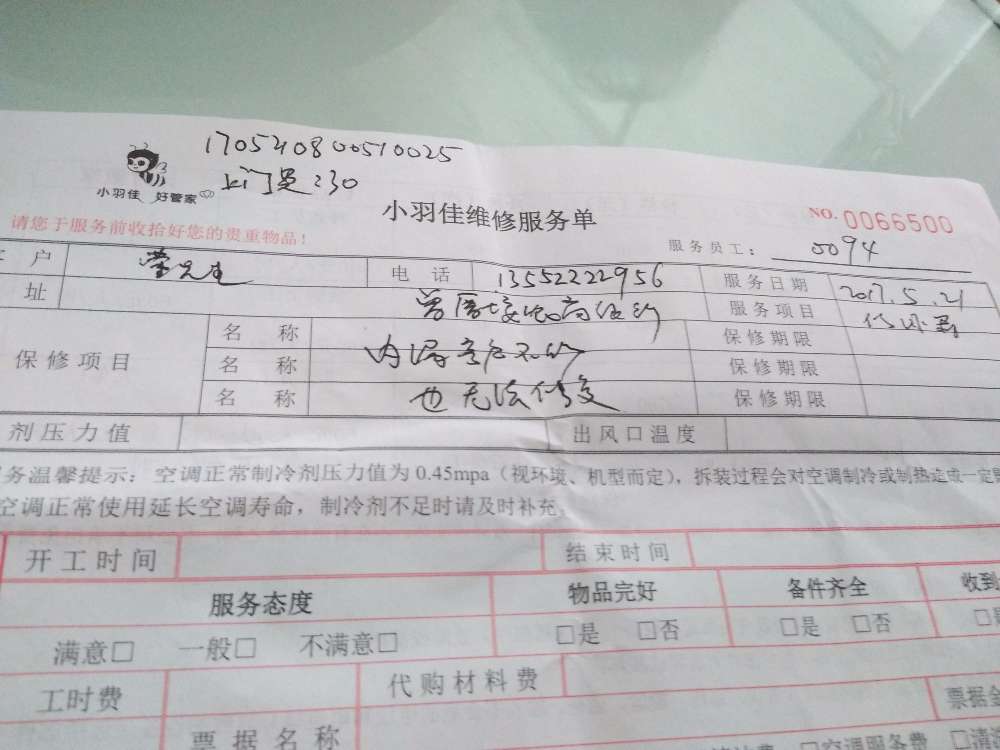 1705210800510025
上门是:30
小羽佳 好管家
小羽佳维修服务单
NO. 0066500
请您于服务前收拾好您的贵重物品!
服务员工: 0094
户 电话 13552222956 服务日期 2017.5.21
址 服务项目
保修项目 名称 保修期限
名称 保修期限
名称 也无法修复 保修期限
剂压力值 出风口温度
务温馨提示:空调正常制冷剂压力值为0.45mpa(视环境、机型而定),拆装过程会对空调制冷或制热造成一定
空调正常使用延长空调寿命,制冷剂不足时请及时补充。
开工时间 结束时间
服务态度 物品完好 备件齐全 收到
满意□ 一般□ 不满意□ □是 □否 □是 □否
工时费 代购材料费
票据名称 □空调服务费